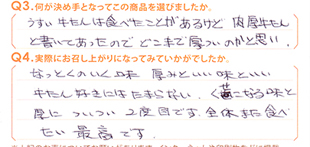 Q3.何が決め手となってこの商品を選びましたか。
うすい牛たんは食べたことがあるけど 肉厚牛たん
と書いてあったので どこまで厚ついのかと思い。
Q4.実際にお召し上がりになってみていかがでしたか。
なっとくのいく味 厚みといい味といい
牛たん好きにはたまらない。 なる味と
厚に ついつい 2度目です。全体また食べ
たい 最高です。